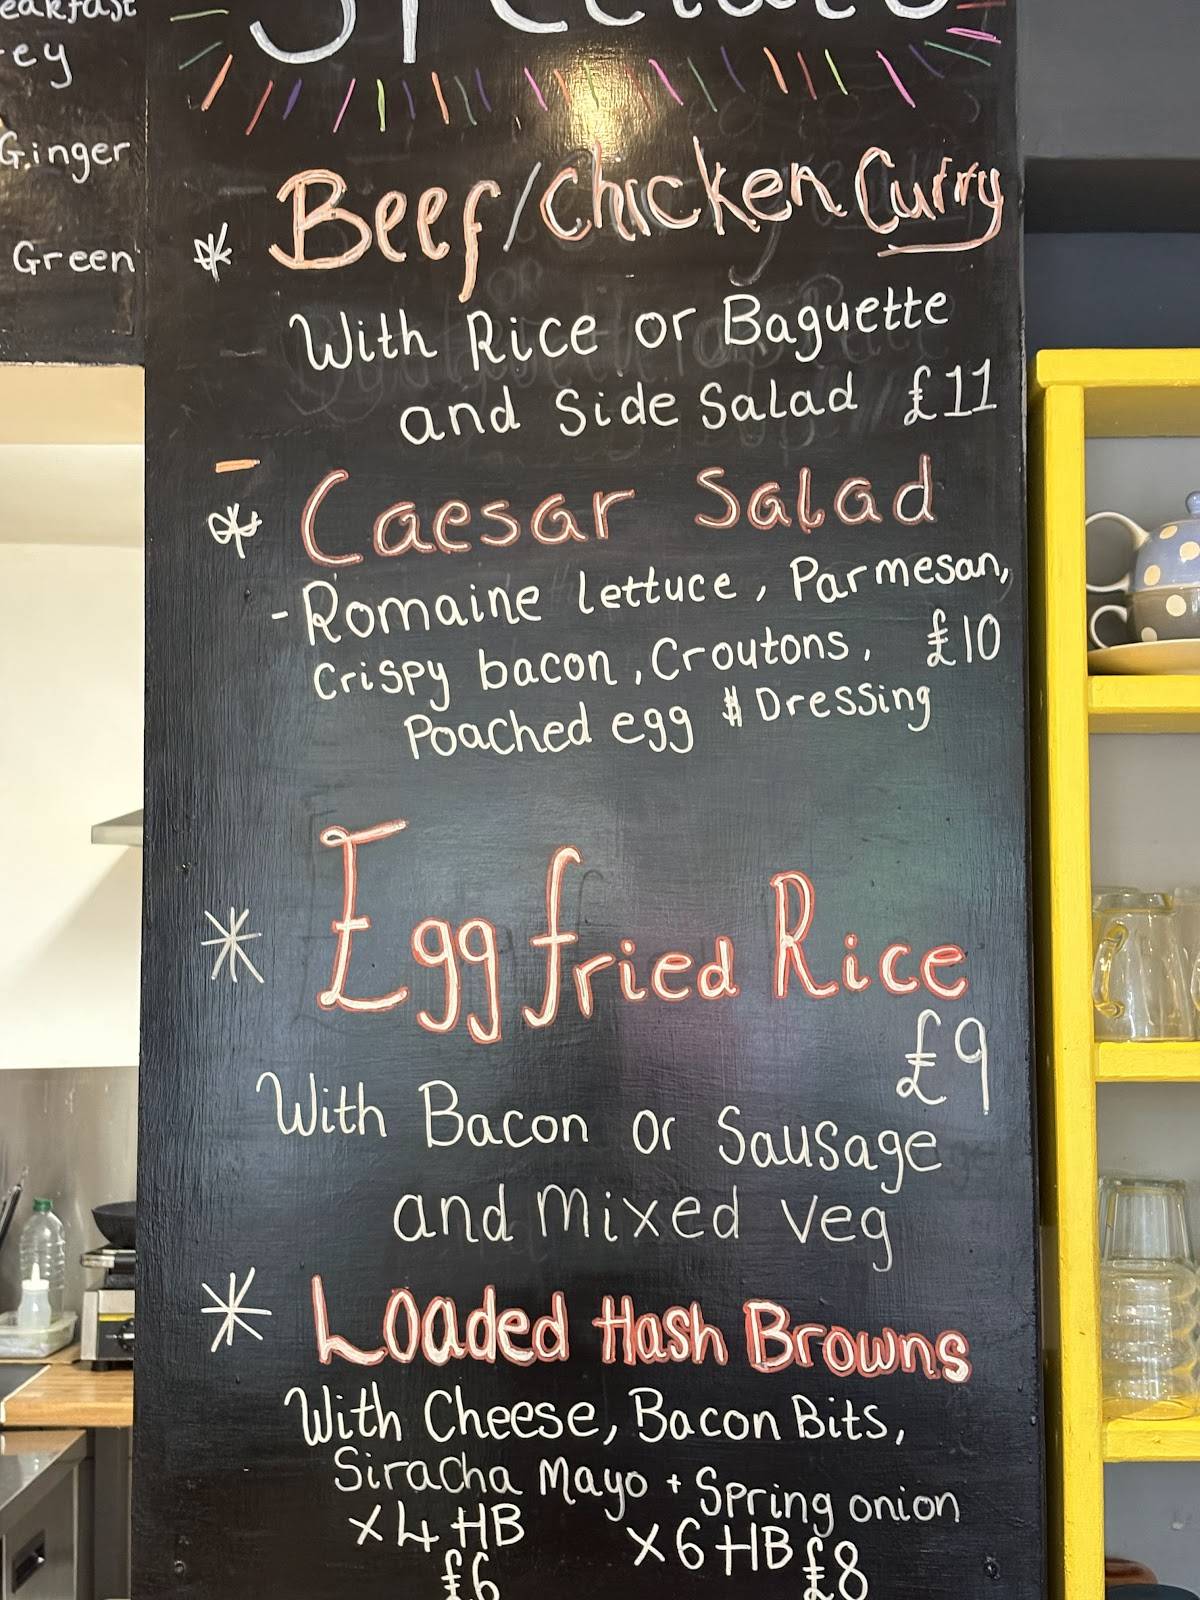 Specials
eakfast
ey
Ginger
Green
* Beef/Chicken Curry
With Rice or Baguette
and Side Salad £11
* Caesar Salad
- Romaine lettuce, Parmesan,
Crispy bacon, Croutons, £10
Poached egg & Dressing
* Egg fried Rice
£9
With Bacon or Sausage
and mixed veg
* Loaded Hash Browns
With Cheese, Bacon Bits,
Siracha Mayo + Spring onion
x4 HB x6 HB £8
£6